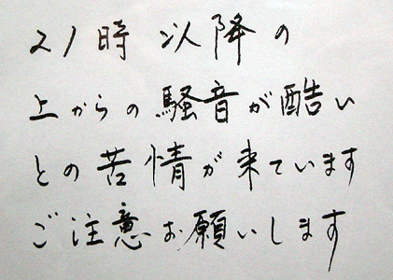 21時以降の
上からの騒音が酷い
との苦情が来ています
ご注意お願いします